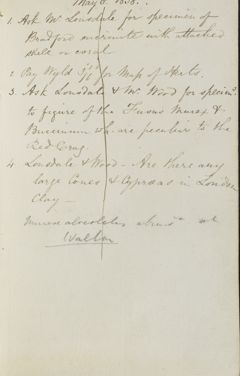 May 8. 1838.
1. Ask Mr Lonsdale for specimen of
Bradford encrinite with attached
shell or coral
2. Pay Wyld for Map of Herts.
3. Ask Lonsdale & Mr Wood for specimn.
to figure of the Fusus Murex &
Buccinum wh. are peculiar to the
Red Crag.
4 Lonsdale & Wood – Are there any
large Cones & Cypraeas in London
Clay –
Murex alveolatus at
Walton